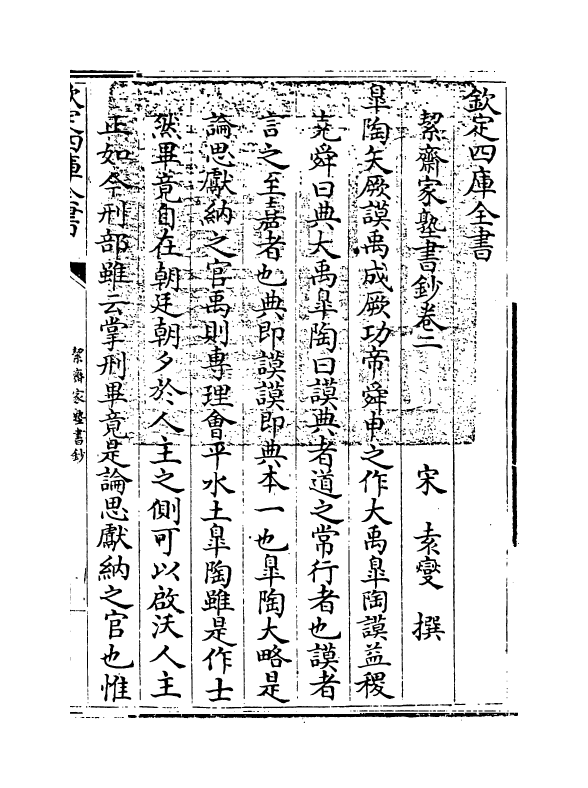 欽定四庫全書
絜齋家塾書鈔卷二
宋 袁燮 撰
臯陶矢厥謨禹成厥功帝舜申之作大禹臯陶謨益稷
堯舜曰典大禹臯陶曰謨典者道之常行者也謨者
言之至嘉者也典即謨謨即典本一也臯陶大略是
論思獻納之官禹則專理會平水土臯陶雖是作士
然畢竟自在朝廷朝夕於人主之側可以啟沃人主
正如今刑部雖云掌刑畢竟是論思獻納之官也惟
欽定四庫全書
絜齋家塾書鈔